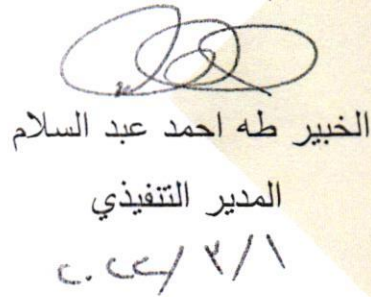 الخبير طه احمد عبد السلام
المدير التنفيذي
٢٠٢٢/٣/١